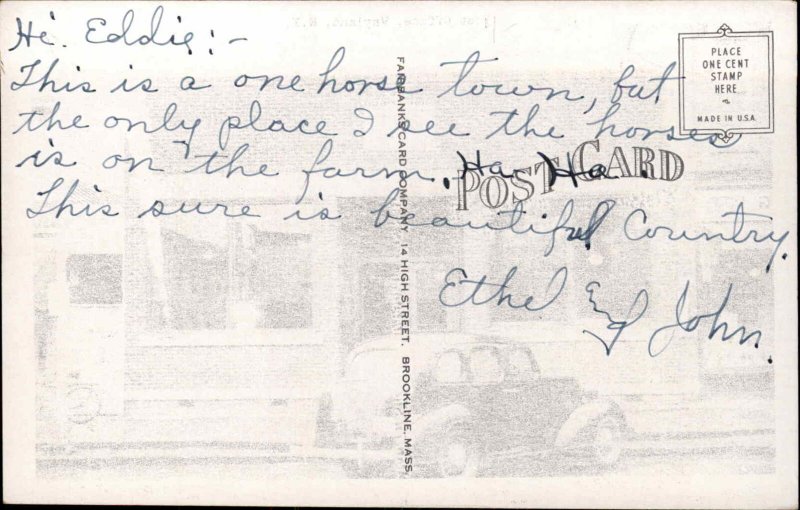 Hi. Eddie:-
This is a one horse town, but
the only place I see the horses
is on the farm. Ha. Ha.
This sure is beautiful Country.
Ethel and John.
POST CARD
PLACE
ONE CENT
STAMP
HERE
MADE IN U.S.A.
FAIRBANKS CARD COMPANY, 14 HIGH STREET. BROOKLINE, MASS.